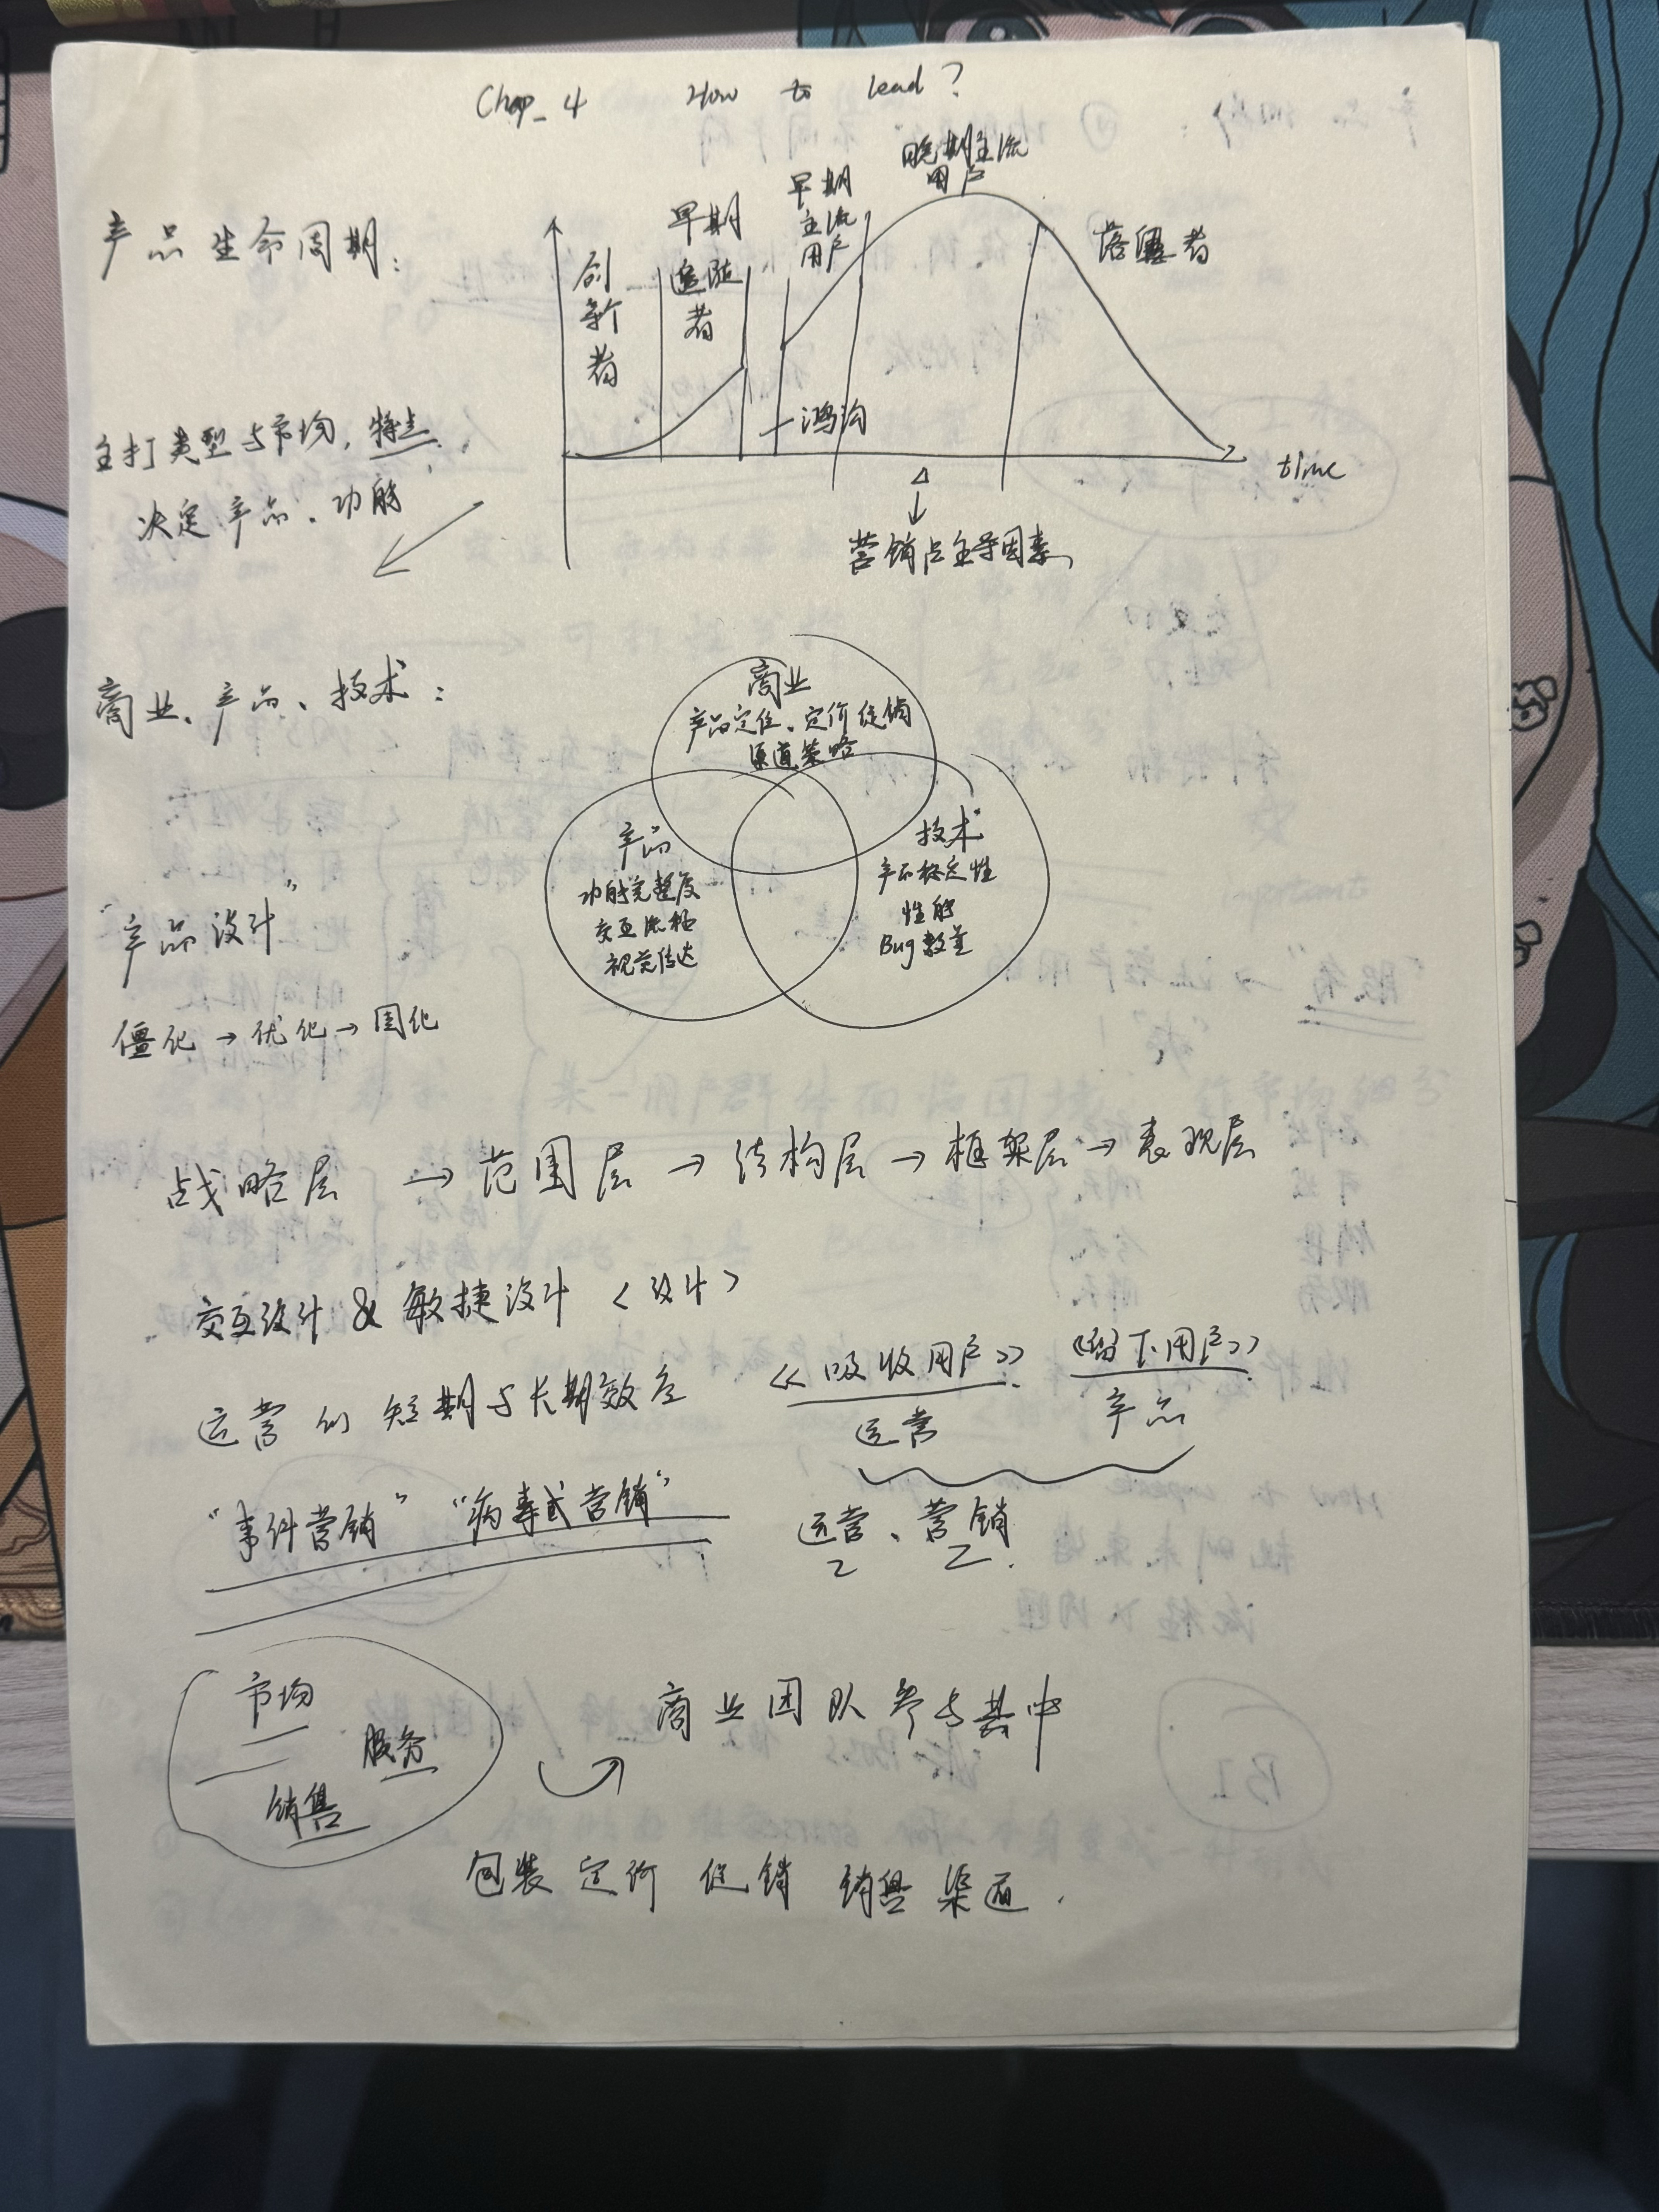 Chap_4 How to lead?
产品生命周期:
创新者
早期追随者
早期主流用户
晚期主流用户
落后者
鸿沟
time
营销占主导因素
主打类型与市场,特点
决定产品、功能
商业、产品、技术:
商业
产品定位、定价促销
渠道策略
产品
功能完整度
交互流程
视觉传达
技术
产品稳定性
性能
Bug数量
“产品设计”
僵化→优化→固化
战略层→范围层→结构层→框架层→表现层
交互设计 & 敏捷设计 <设计>
运营的短期与长期效应
《吸收用户》 《留下用户》
运营 产品
“事件营销” “病毒式营销”
运营、营销
市场
服务
销售
商业团队参与其中
包装 定价 促销 销售 渠道.